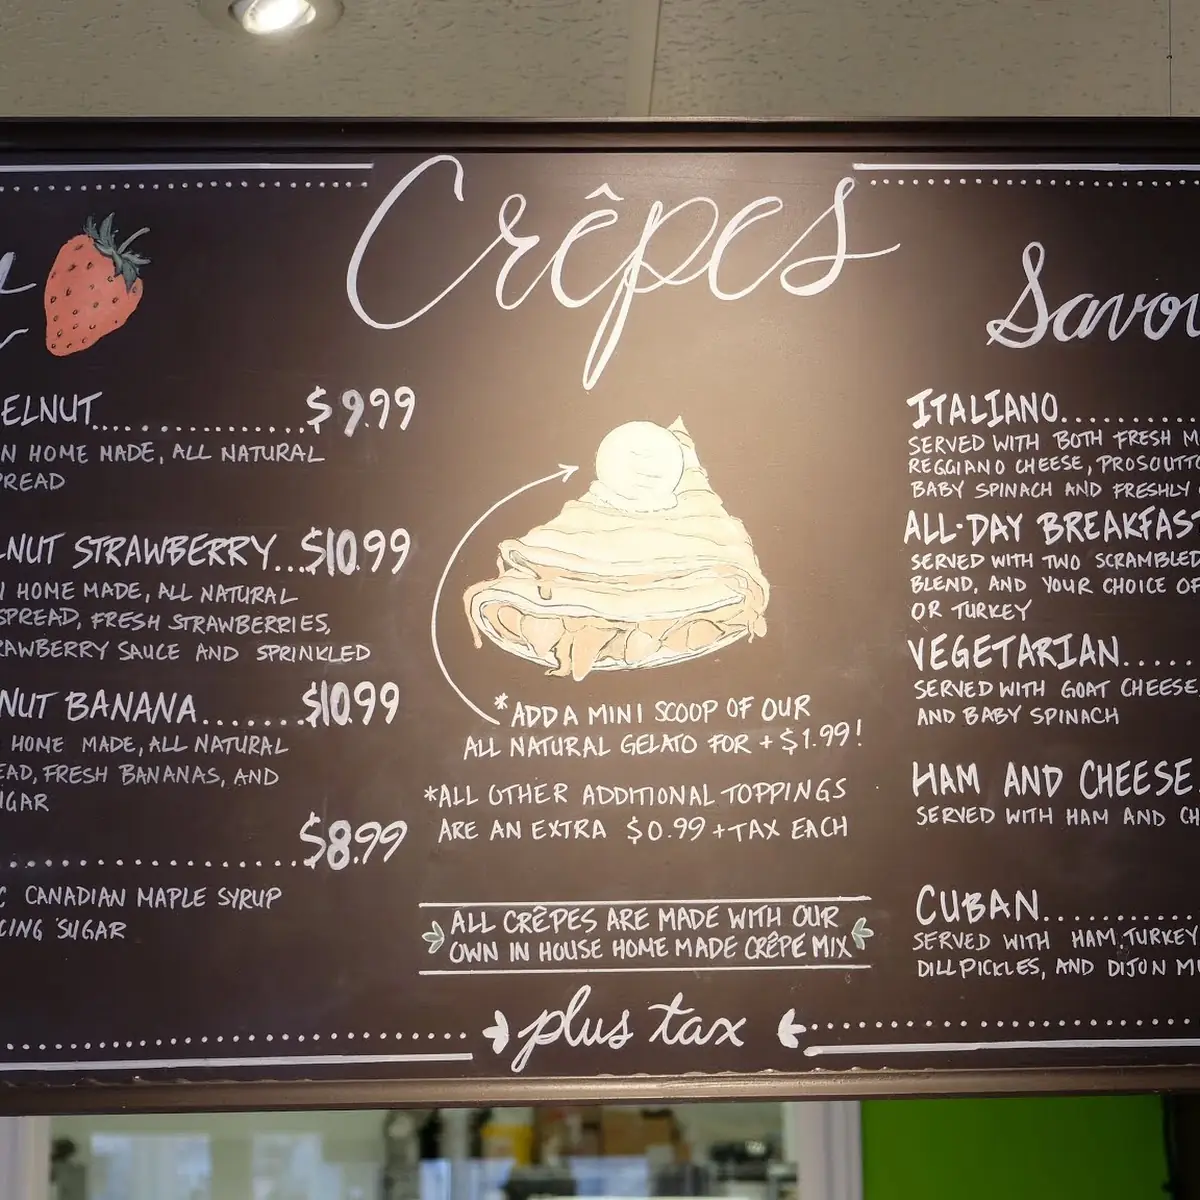 Crêpes
ELNUT..................$9.99
N HOME MADE, ALL NATURAL
PREAD
LNUT STRAWBERRY...$10.99
HOME MADE, ALL NATURAL
SPREAD, FRESH STRAWBERRIES,
RAWBERRY SAUCE AND SPRINKLED
NUT BANANA.......$10.99
HOME MADE, ALL NATURAL
EAD, FRESH BANANAS, AND
GAR
..................$8.99
C CANADIAN MAPLE SYRUP
CING SUGAR
*ADD A MINI SCOOP OF OUR
ALL NATURAL GELATO FOR +$1.99!
*ALL OTHER ADDITIONAL TOPPINGS
ARE AN EXTRA $0.99+TAX EACH
ALL CRÊPES ARE MADE WITH OUR
OWN IN HOUSE HOME MADE CRÊPE MIX
plus tax
Savou
ITALIANO..........
SERVED WITH BOTH FRESH M
REGGIANO CHEESE, PROSCIUTTO
BABY SPINACH AND FRESHLY
ALL-DAY BREAKFAS
SERVED WITH TWO SCRAMBLED
BLEND, AND YOUR CHOICE OF
OR TURKEY
VEGETARIAN.....
SERVED WITH GOAT CHEESE
AND BABY SPINACH
HAM AND CHEESE
SERVED WITH HAM AND CH
CUBAN..........
SERVED WITH HAM, TURKEY
DILL PICKLES, AND DIJON MU